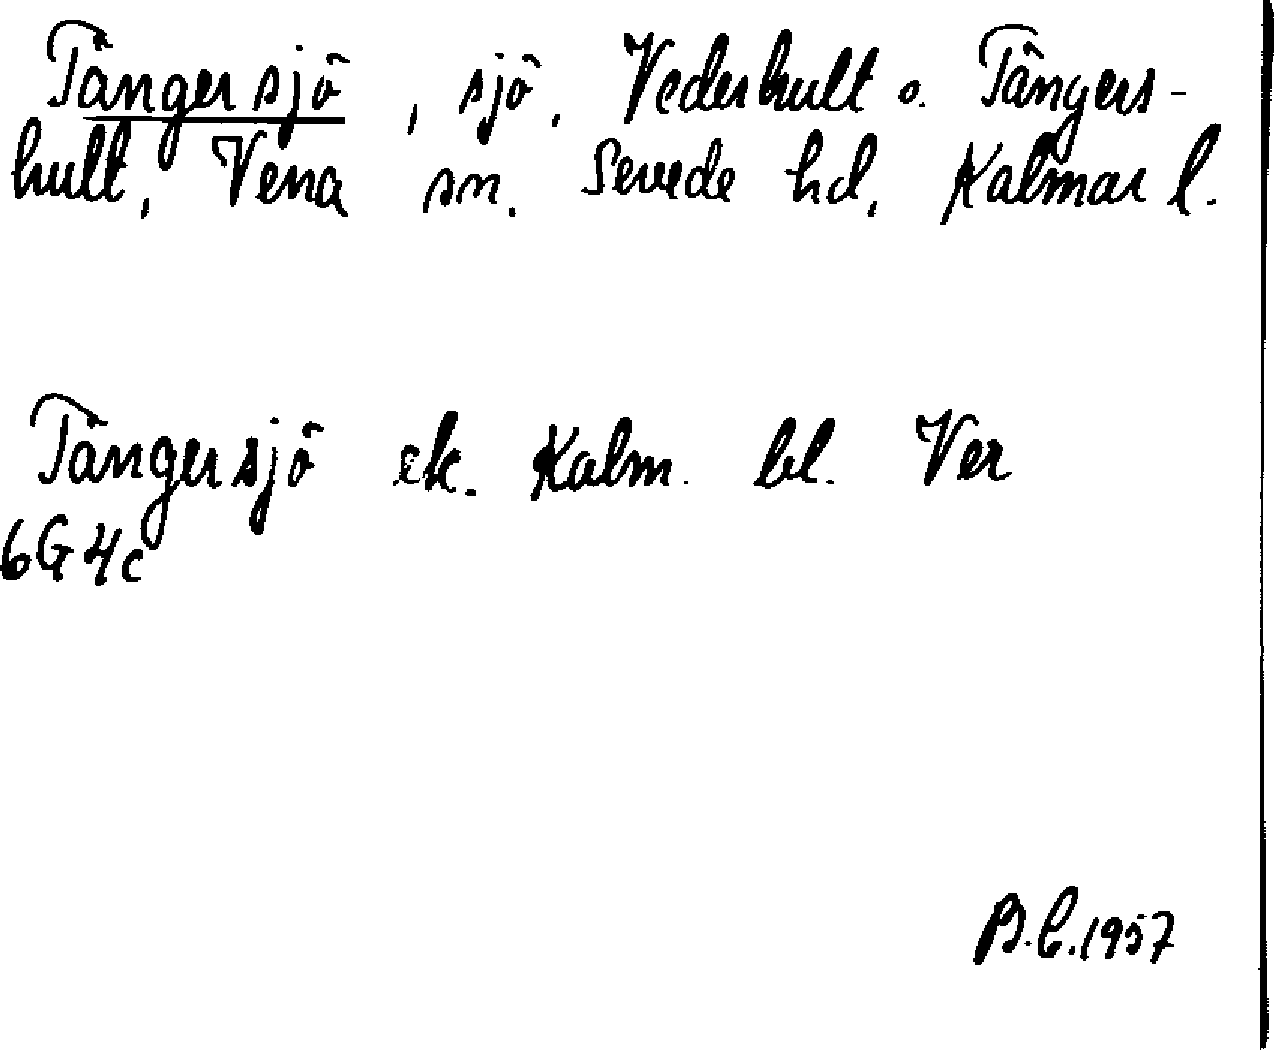 Tångersjö, sjö, Vederhult o. Tångers-
hult, Vena sn. Sevede hd, Kalmar l.
Tångersjö ek. Kalm. bl. Ver
6G4c
B.C.1957